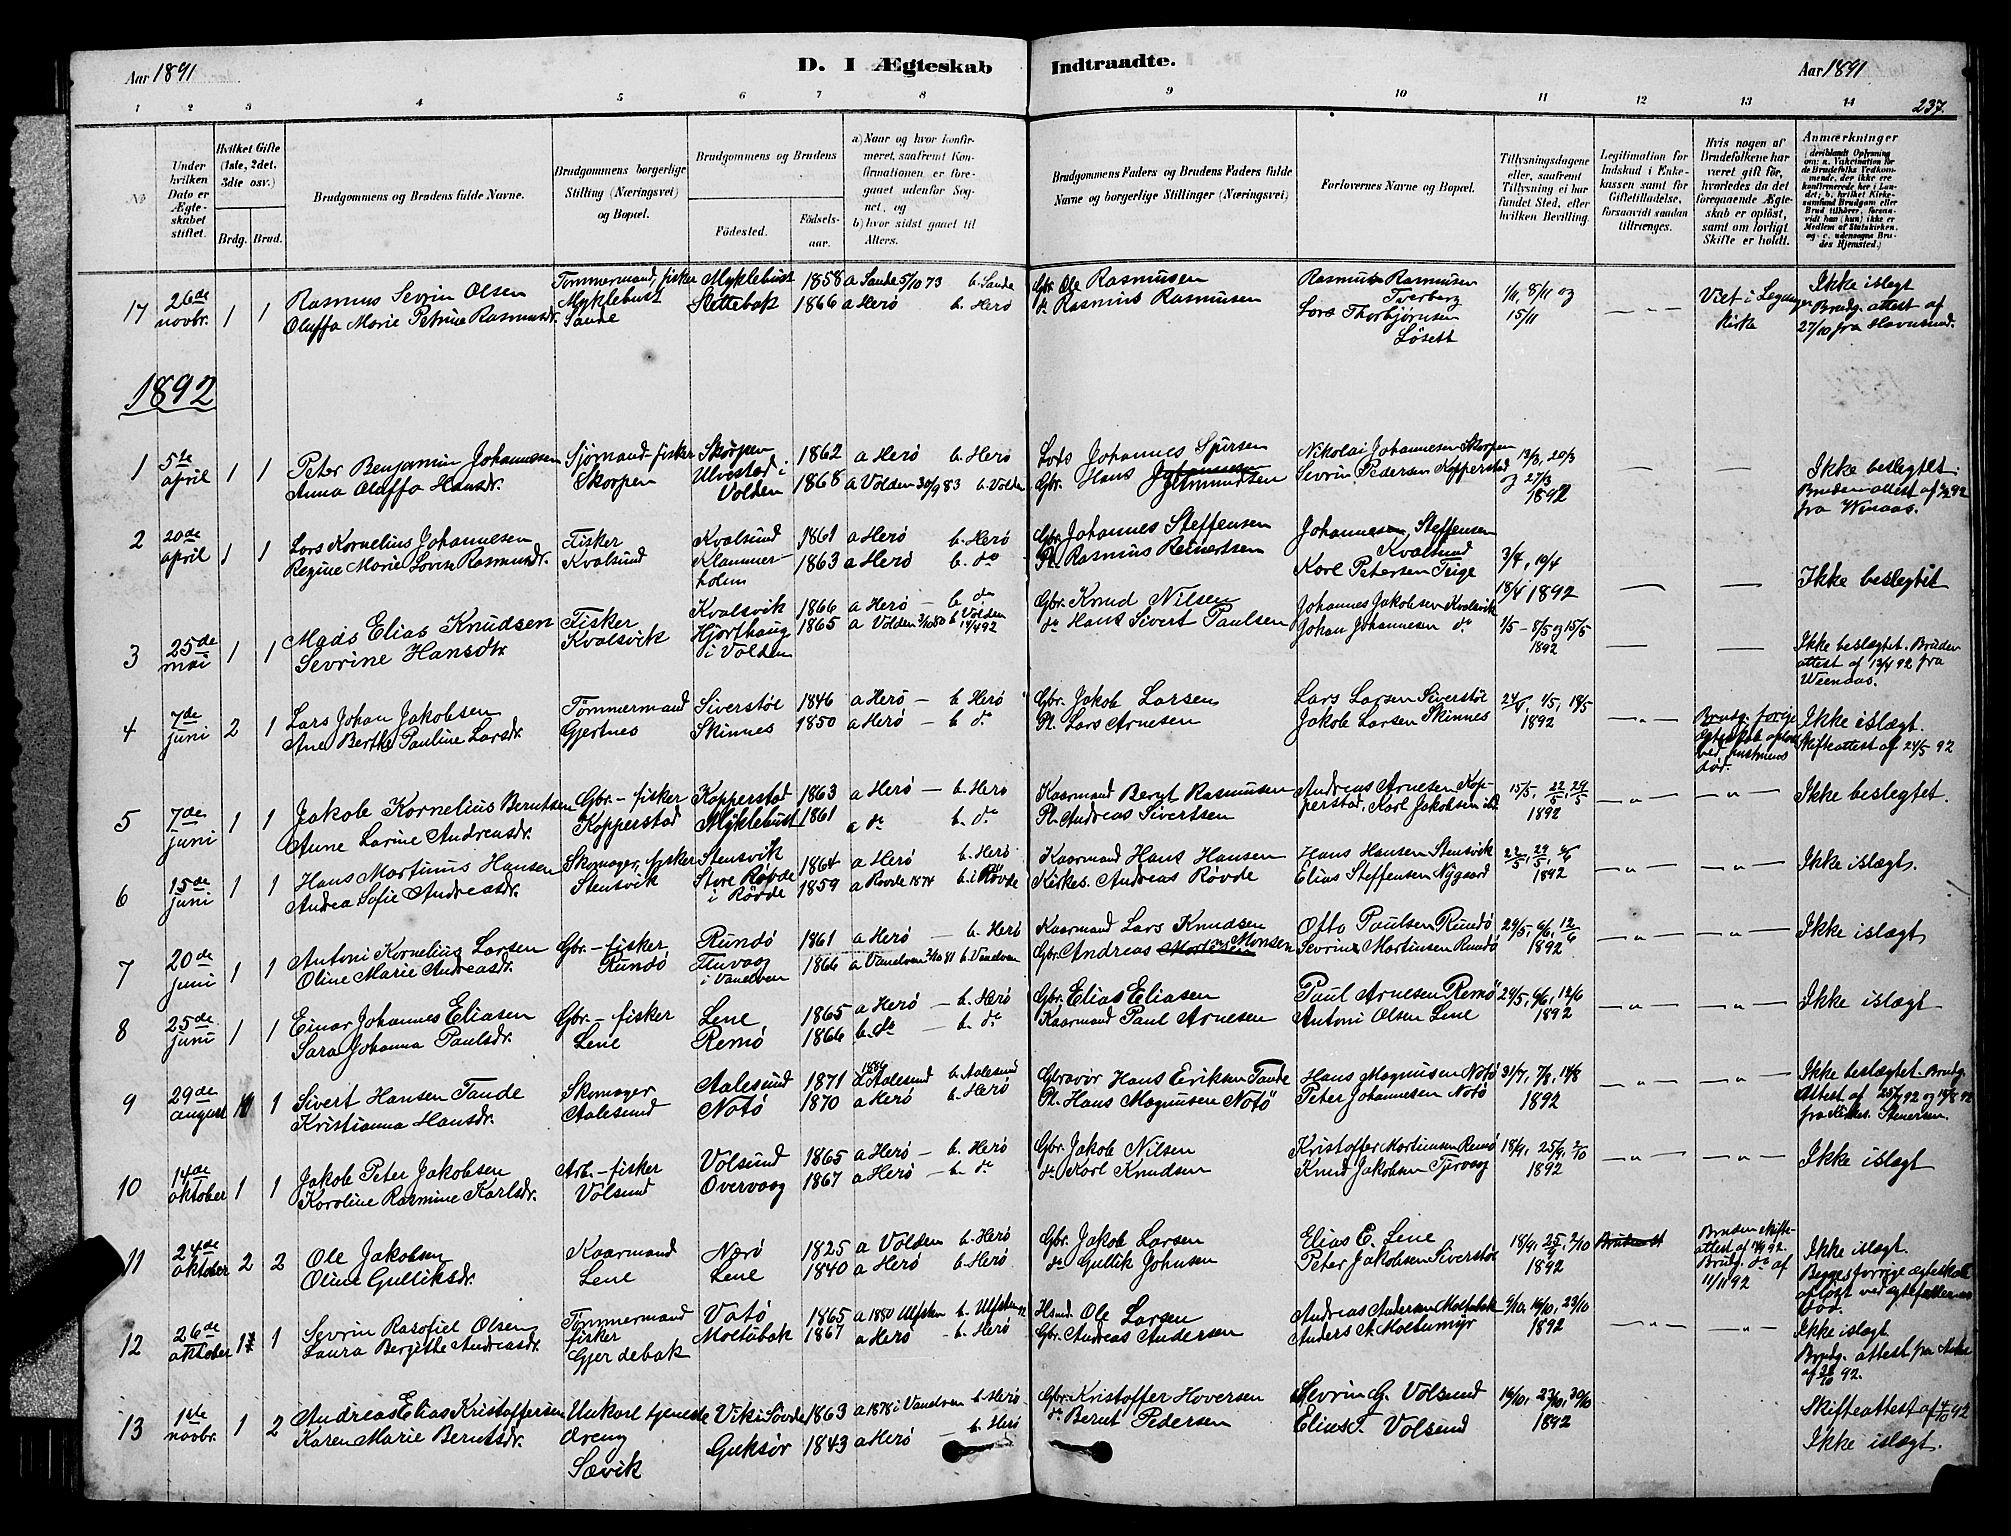 Aar 1891
D. I Ægteskab Indtraadte.
Aar 1891
237.
1 2 3 4 5 6 7 8 9 10 11 12 13 14
No
Under hvilken Dato er Ægteskabet stiftet.
Hvilket Gifte (1ste, 2det. 3die osv.)
Brdg. Brud.
Brudgommens og Brudens fulde Navne.
Brudgommens borgerlige Stilling (Næringsvei) og Bopæl.
Brudgommens og Brudens
Fødested. Fødselsaar.
a) Naar og hvor konfirmeret, saafremt Konfirmationen er foregaaet udenfor Sognet, og
b) hvor sidst gaaet til Alters.
Brudgommens Faders og Brudens Faders fulde Navne og borgerlige Stillinger (Næringsvei)
Forlovernes Navne og Bopæl.
Tillysningsdagene eller, saafremt Tillysning ei har fundet Sted, efter hvilken Bevilling.
Legitimation for Indskud i Enkekassen samt for Giftetilladelse, forsaavidt saadan tiltrænges.
Hvis nogen af Brudefolkene har været gift før, hvorledes da det foregaaende Ægteskab er opløst, samt om lovligt Skifte er holdt.
Anmærkninger
17 26de novbr. 1 1
Rasmus Sevrin Olsen
Oluffa Marie Petrine Rasmusdr.
Tømmermand, fisker
Myklebust
Sande
Myklebust 1858 a Sande 5/10 73 b. Sande
Slettebak 1866 a Herø b. Herø
Gbr. Ole Rasmussen
do Rasmus Rasmussen
Rasmus Rasmussen
Tverberg
Lars Thorbjørnsen
Løsett
1/11, 8/11 og
15/11
Viet i Leganger
Kirke
Ikke islegt
Brudg. attest af
27/10 fra Havnsund.
1892
1 5te april 1 1
Peter Benjamin Johannessen
Anna Oluffa Hansdr.
Sjømand-fisker
Skorpen
Skorpen 1862 a Herø b. Herø
Ulvestad i
Volden 1868 a Volden 30/9 83 b. Volden
Johannes Spursen
Gbr. Hans
Nikolai Johannesen Skorpen
Sevrin Pedersen Kopperstad
13/3, 20/3
og 27/3
1892
Ikke beslegtet.
Brudens attest af
fra
2 20de april 1 1
Lars Kornelius Johannesen
Regine Marie Lovise Rasmusdr.
Fisker
Kvalsund
Kvalsund 1861 a Herø b. Herø
Klammerholm 1863 a Herø b. do
Gbr. Johannes Steffensen
Pl. Rasmus Reinertsen
Johannesen Steffensen
Kvalsund
Karl Petersen Teige
3/4, 10/4
18/4 1892
Ikke beslegtet
3 25de mai 1 1
Mads Elias Knudsen
Sevrine Hansdtr
Fisker
Kvalsvik
Kvalsvik 1866 a Herø — b. do
Hjorthaug
i Volden 1865 a Volden b. Volden
Gbr. Knud Nilsen
do Hans Sivert Paulsen
Johannes Jakobsen Kvalsvik
Johan Johannesen do
1/5 – 8/5 og 15/5
1892
Ikke beslægtet. Bruden
attest af 13/4 92 fra
4 7de juni 2 1
Lars Johan Jakobsen
Ane Berthe Pauline Larsdr.
Tømmermand
Gjertnes
Siverstøl 1846 a Herø — b. Herø
Skinnes 1850 a Herø — b. do
Gbr. Jakob Larsen
Pl. Lars Arnesen
Lars Larsen Siverstøl
Jakob Larsen Skinnes
24/4, 1/5, 18/5
1892
Brudg. forige
Egteskab opløst
ved hustruens
død.
Ikke islægt.
Skifteattest af 24/5 92
5 7de juni 1 1
Jakob Kornelius Berntsen
Anne Larine Andreasdr.
Gbr.–fisker
Kopperstad
Kopperstad 1863 a Herø — b. Herø
Myklebust 1861 a do b. do
Kaarmand Bergt Rasmussen
Pl. Andreas Sivertsen
Andreas Arnesen Kopperstad, Karl Jakobsen ibd
15/5, 22/5, 29/5
1892
Ikke beslegtet.
6 15de juni 1 1
Hans Martinus Hansen
Andrea Sofie Andreasdr.
Skomager, fisker
Stensvik
Stensvik 1864 a Herø b. Herø
Store Røvde
i Røvde 1859 a Røvde 1874 b. i Røvde
Kaarmand Hans Hansen
Kirkes. Andreas Røvde
Hans Hansen Stensvik
Elias Steffensen Nygaard
22/5, 29/5, 6/6
1892
Ikke islægt.
7 20de juni 1 1
Antoni Kornelius Larsen
Oline Marie Andreasdr.
Gbr.–fisker
Rundø
Rundø 1861 a Herø — b. Herø
i Vanelven 1866 a Vanelven b. Vanelven
Kaarmand Lars Knudsen
Gbr. Andreas Monsen
Otto Paulsen Rundø
Sevrin Martinsen Rundø
29/5, 6/6, 12/6
1892
Ikke islægt
8 25de juni 1 1
Einar Johannes Eliasen
Sara Johanna Paulsdr.
Gbr.–fisker
Lene
Lene 1865 a Herø — b. Herø
Remø 1866 b. do — b. do
Gbr. Elias Eliasen
Kaarmand Paul Arnesen
Paul Arnesen Remø
Antoni Olsen Lene
29/5, 6/6, 12/6
1892
Ikke islegt
9 29de august 1 1
Sivert Hansen Tande
Kristianna Hansdr.
Skomager
Aalesund
Aalesund 1871 Aalesund b. Aalesund
Notø 1870 a Herø b. Herø
Gbravør Hans Eriksen Tande
Pl. Hans Magnusen Notø
Hans Magnusen Notø
Peter Johannesen Notø
31/7, 7/8, 14/8
1892
Ikke beslægtet. Brudg.
Attest af 25/7 92 og 14/8 92
fra Kirkes.
10 14de oktober 1 1
Jakob Peter Jakobsen
Karoline Rasmine Karlsdr.
Arb.–fisker
Volsund
Volsund 1865 a Herø — b. Herø
Overvaag 1867 a Herø — b. do
Gbr. Jakob Nilsen
do Karl Knudsen
Kristoffer Martinsen Remø
Knud Jakobsen Tjrvaag
18/9, 25/9, 2/10
1892
Ikke islegt
11 24de oktober 2 2
Ole Jakobsen
Oline Gulliksdr.
Kaarmand
Lene
Nerø 1825 a Volden b. Herø
Lene 1840 a Herø b. Herø
Gbr. Jakob Larsen
do Gullik Johnsen
Elias E. Lene
Peter Jakobsen Siverstøl
18/9, 25/9, 2/10
1892
Bruden Skifteattest af 14/9 92.
Brudg. do af
11/11 92
Ikke islegt.
Begges forrige ægteskab
opløst ved ægtefællernes
Død.
12 26de oktober 1 1
Sevrin Rasofiel Olsen
Laura Bergithe Andreasdr.
Tømmermand
fisker
Gjerdebak
Vatø 1865 a 1880 Ulfsten b. Ulfsten
Moltubak 1867 a Herø — b. Herø
Hsmd. Ole Larsen
Gbr. Andreas Andersen
Andreas Andersen Moltubak
Anders A. Moltumyr
9/10, 16/10, 23/10
1892
Ikke islegt
Brudg. attest fra
13 1ste novbr. 1 2
Andreas Elias Kristoffersen
Karen Marie Berntsdr.
Unkarl tjeneste
dreng
Sævik
Vik i Søvde 1863 a 1878 i Vanelven b. Herø
Guksør 1843 a Herø — b. Herø
Gbr. Kristoffer Hoversen
do Bernt Pedersen
Sevrin G. Volsund
Elias T. Volsund
16/10, 23/10, 30/10
1892
Skifteattest af 4/10 92
Ikke islegt.